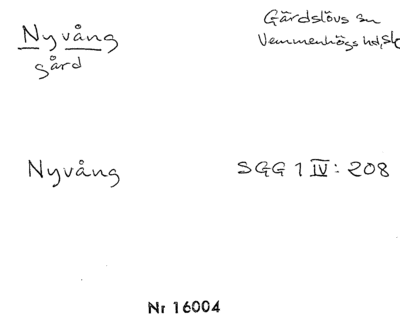 Nyvång
gård
Gärdslövs sn
Vemmenhögs hd, Sk
Nyvång
SGG 1 IV: 208
Nr 16004